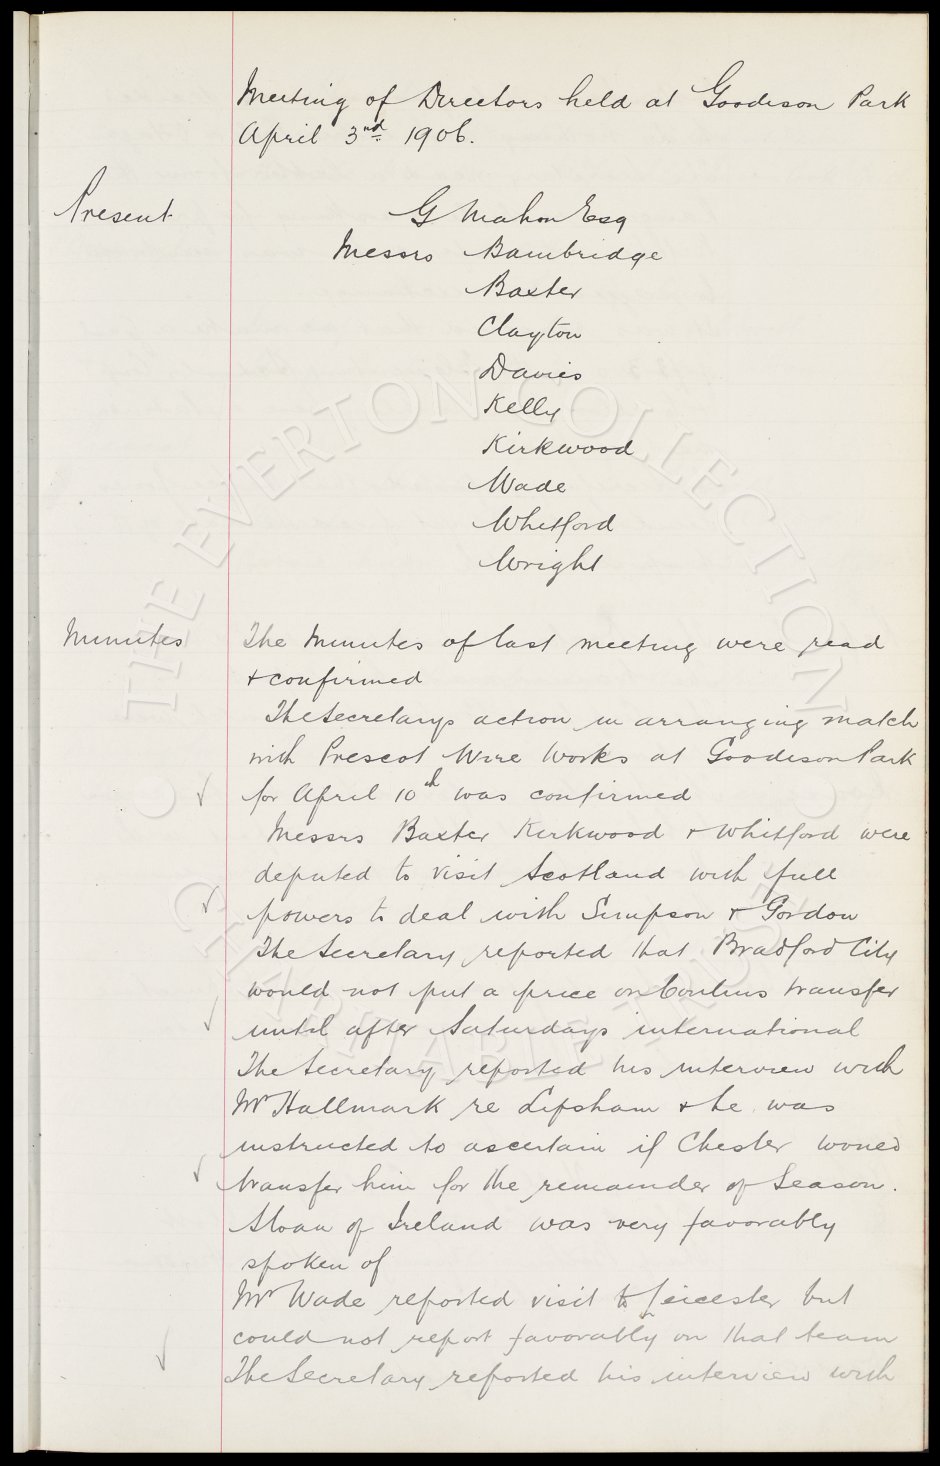 Meeting of Directors held at Goodison Park
April 3rd 1906.
Present
G Mahon Esq
Messrs Bainbridge
Baxter
Clayton
Davies
Kelly
Kirkwood
Wade
Whitford
Wright
Minutes
The Minutes of last meeting were read
& confirmed
The Secretarys action in arranging match
with Prescot Wire Works at Goodison Park
for April 10th was confirmed
Messrs Baxter Kirkwood & Whitford were
deputed to visit Scotland with full
powers to deal with Simpson & Gordon
The Secretary reported that Bradford City
would not put a price on Conlins transfer
until after Saturdays international
The Secretary reported his interview with
Mr Hallmark re Lipsham & he was
instructed to ascertain if Chester would
transfer him for the remainder of Season.
Sloan of Ireland was very favorably
spoken of
Mr Wade reported visit to Leicester but
could not report favorably on that team
The Secretary reported his interview with
© THE EVERTON COLLECTION
CHARITABLE TRUST